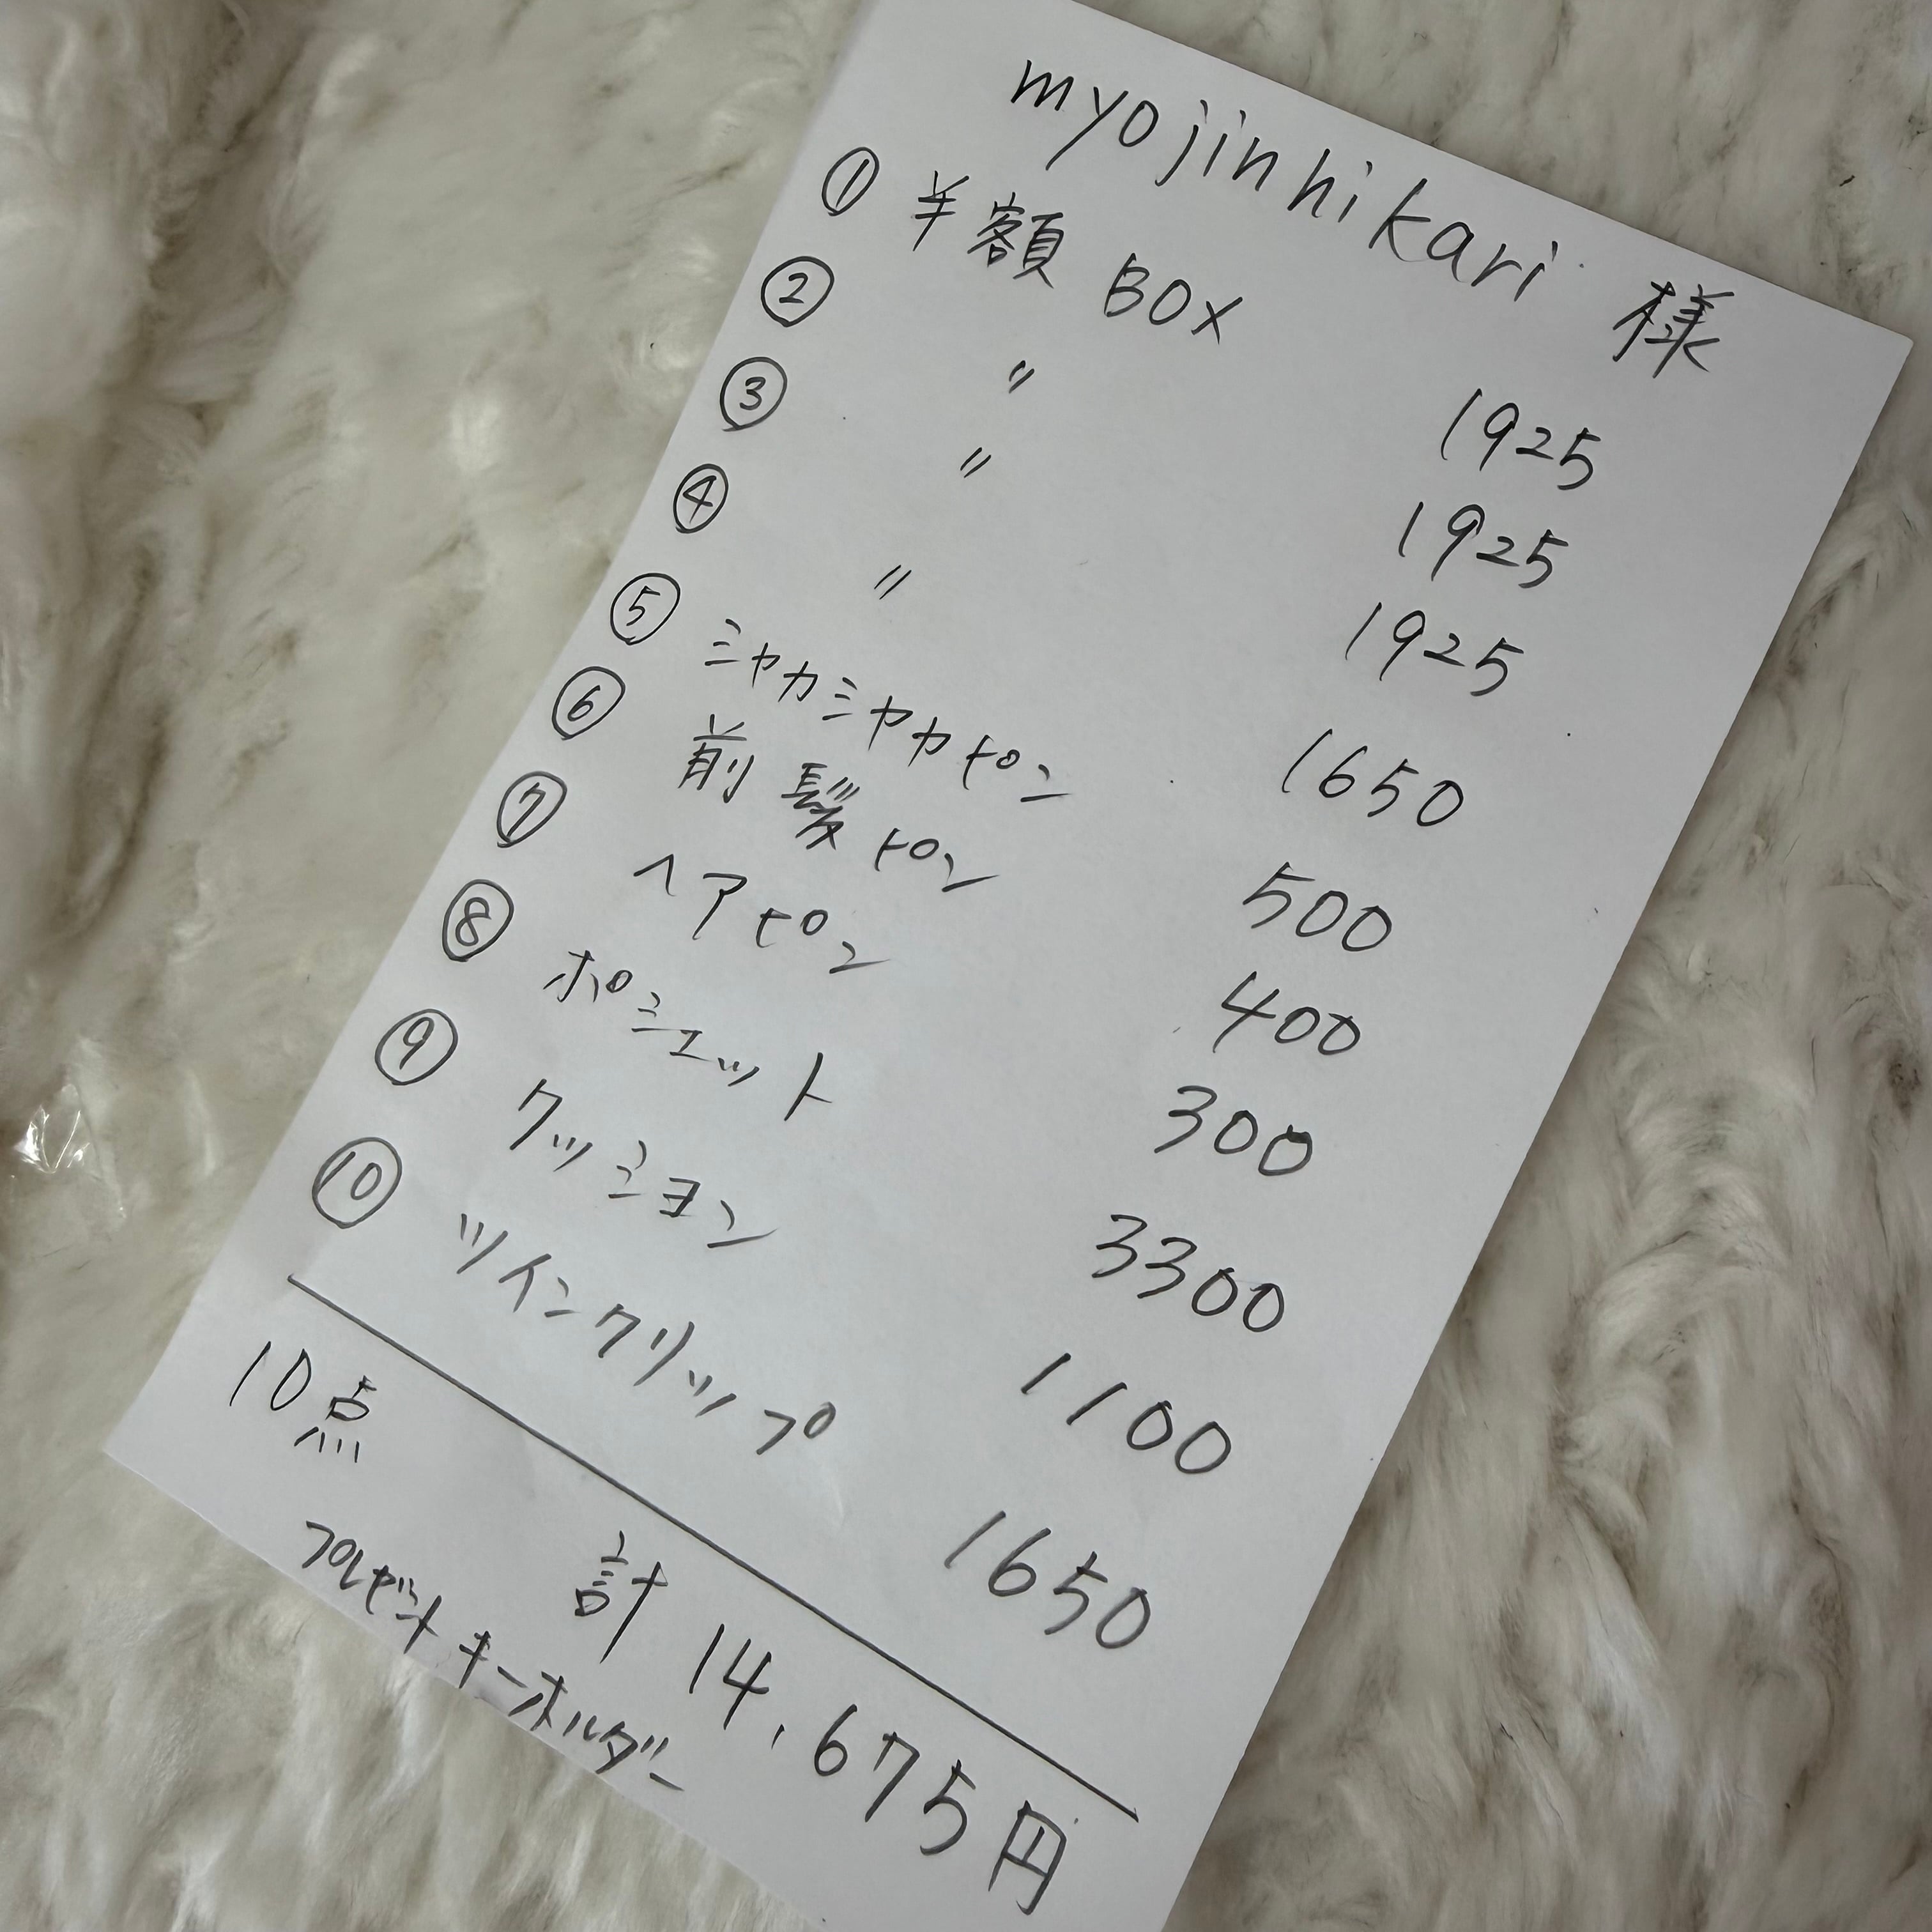 myojinhikari 様
① 半額 BOX 1925
② 〃 1925
③ 〃 1925
④ 〃 1650
⑤ シャカシャカピン 500
⑥ 前髪ピン 400
⑦ ヘアピン 300
⑧ ポシェット 3300
⑨ クッション 1100
⑩ ツインクリップ 1650
10点 計 14.675円
プレゼント キーホルダー